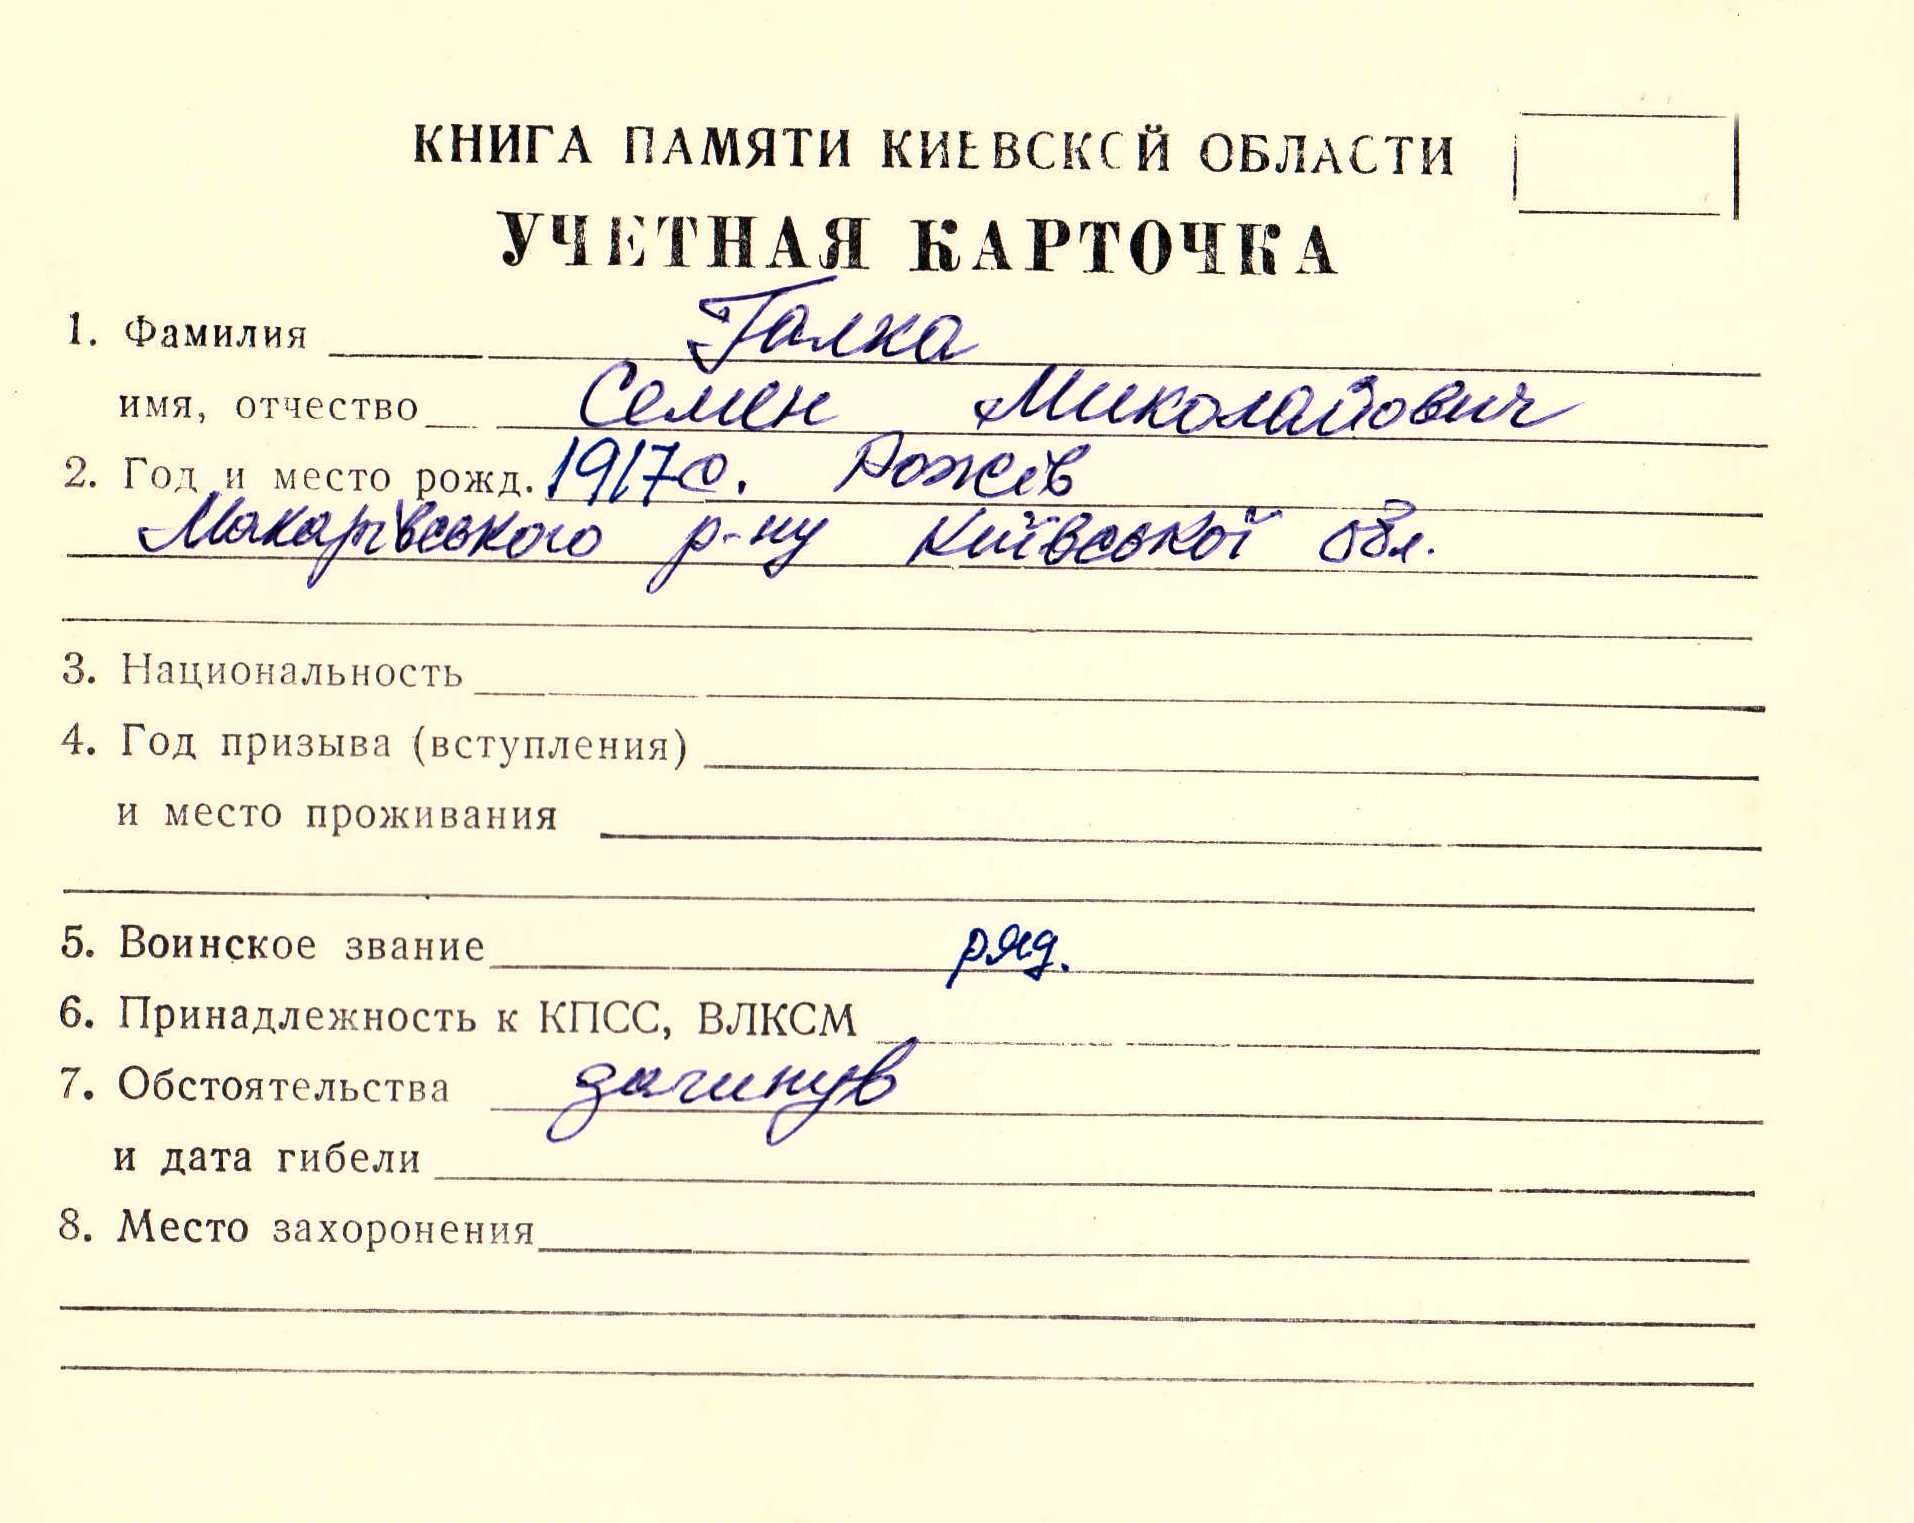 КНИГА ПАМЯТИ КИЕВСКОЙ ОБЛАСТИ
УЧЕТНАЯ КАРТОЧКА
1. Фамилия Галка
имя, отчество Семен Миколайович
2. Год и место рожд. 1917 с. Рожів
Макарівського р-ну Київської обл.
3. Национальность
4. Год призыва (вступления)
и место проживания
5. Воинское звание ряд.
6. Принадлежность к КПСС, ВЛКСМ
7. Обстоятельства загинув
и дата гибели
8. Место захоронения